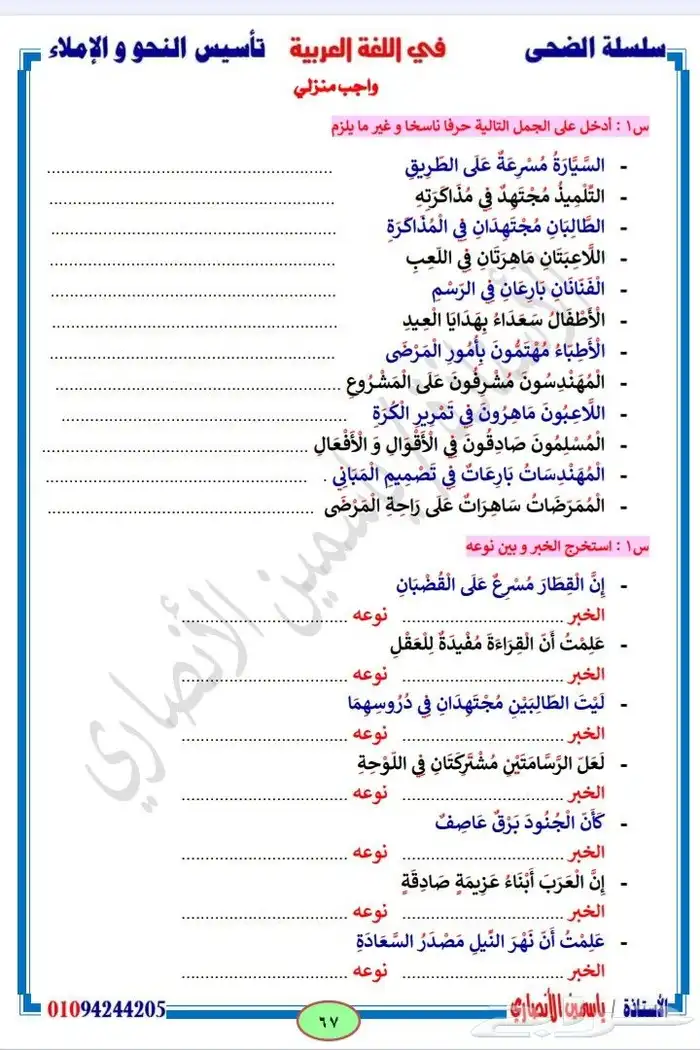 سلسلة الضحى في اللغة العربية تأسيس النحو و الإملاء
واجب منزلي
س١ : أدخل على الجمل التالية حرفا ناسخا و غير ما يلزم
- السَّيَّارَةُ مُسْرِعَةٌ عَلَى الطَّرِيقِ ........................
- التِّلْمِيذُ مُجْتَهِدٌ فِي مُذَاكَرَتِهِ ........................
- الطَّالِبَانِ مُجْتَهِدَانِ فِي الْمُذَاكَرَةِ ........................
- اللَّاعِبَتَانِ مَاهِرَتَانِ فِي اللَّعِبِ ........................
- الْفَنَّانَانِ بَارِعَانِ فِي الرَّسْمِ ........................
- الْأَطْفَالُ سَعَدَاءُ بِهَدَايَا الْعِيدِ ........................
- الْأَطِبَّاءُ مُهْتَمُّونَ بِأُمُورِ الْمَرْضَى ........................
- الْمُهَنْدِسُونَ مُشْرِفُونَ عَلَى الْمَشْرُوعِ ........................
- اللَّاعِبُونَ مَاهِرُونَ فِي تَمْرِيرِ الْكُرَةِ ........................
- الْمُسْلِمُونَ صَادِقُونَ فِي الْأَقْوَالِ وَ الْأَفْعَالِ ........................
- الْمُهَنْدِسَاتُ بَارِعَاتٌ فِي تَصْمِيمِ الْمَبَانِي . ........................
- الْمُمَرِّضَاتُ سَاهِرَاتٌ عَلَى رَاحَةِ الْمَرْضَى ........................
س١ : استخرج الخبر و بين نوعه
- إِنَّ الْقِطَارَ مُسْرِعٌ عَلَى الْقُضْبَانِ
الخبر ........................ نوعه ........................
- عَلِمْتُ أَنَّ الْقِرَاءَةَ مُفْيدَةٌ لِلْعَقْلِ
الخبر ........................ نوعه ........................
- لَيْتَ الطَّالِبَيْنِ مُجْتَهِدَانِ فِي دُرُوسِهِمَا
الخبر ........................ نوعه ........................
- لَعَلَّ الرَّسَّامَتَيْنِ مُشْتَرِكَتَانِ فِي اللَّوْحَةِ
الخبر ........................ نوعه ........................
- كَأَنَّ الْجُنُودَ بَرْقٌ عَاصِفٌ
الخبر ........................ نوعه ........................
- إِنَّ الْعَرَبَ أَبْنَاءُ عَزِيمَةٍ صَادِقَةٍ
الخبر ........................ نوعه ........................
- عَلِمْتُ أَنَّ نَهْرَ النِّيلِ مَصْدَرُ السَّعَادَةِ
الخبر ........................ نوعه ........................
الأستاذة / ياسمين الأنصاري ٦٧ 01094244205